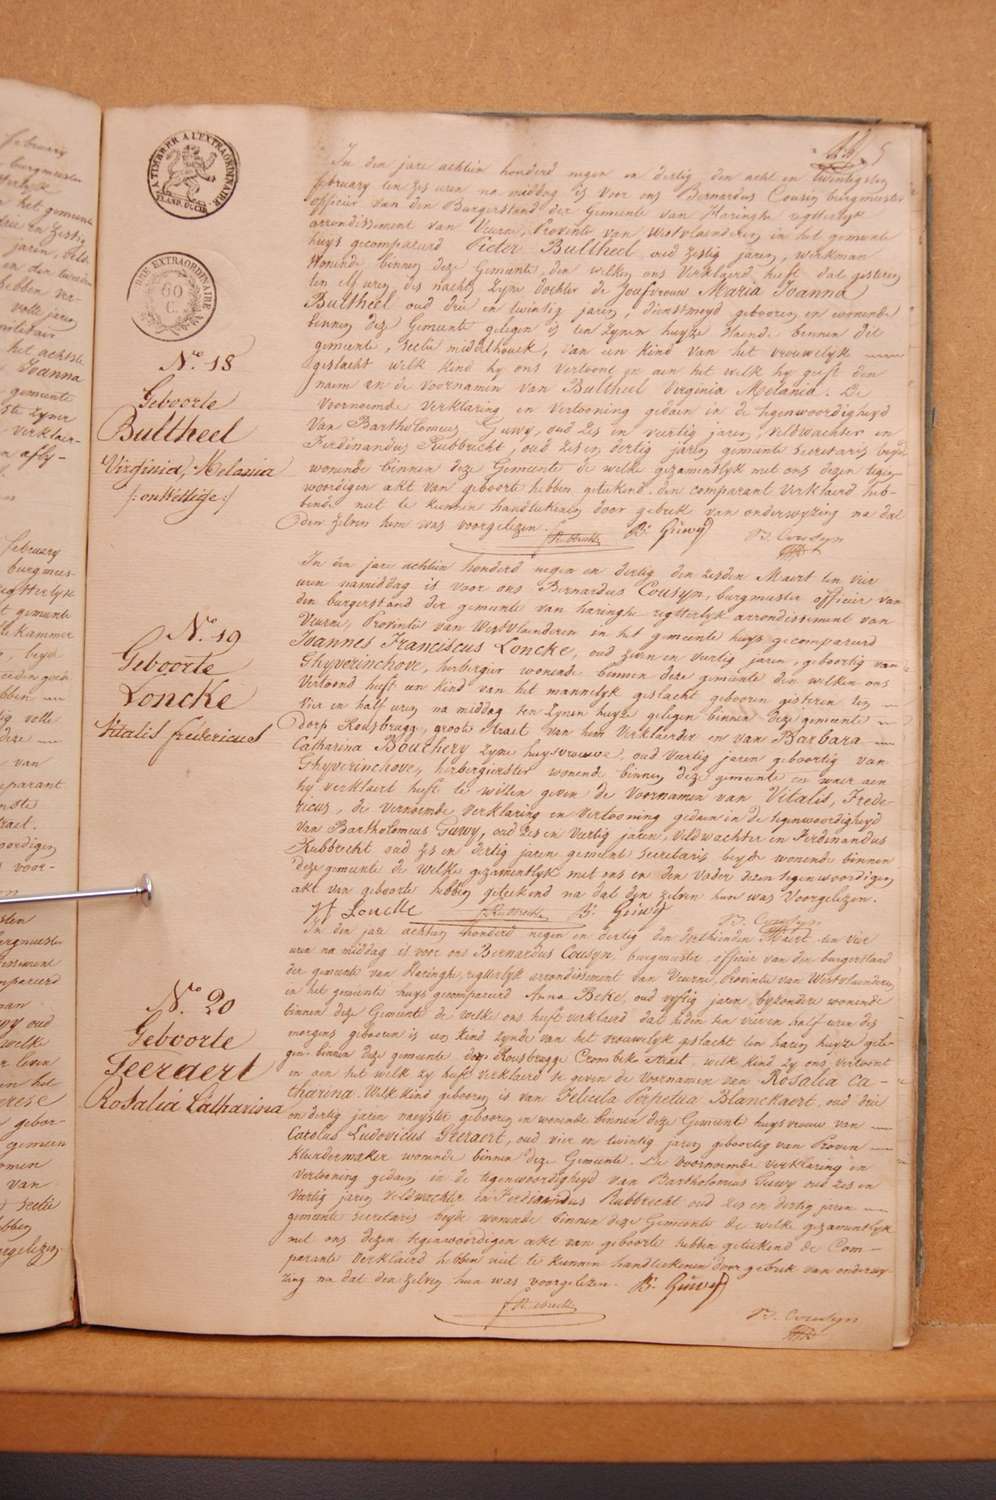 A TIMBRER A L'EXTRAORDINAIRE
FLAND. OCCID.
DIE EXTRAORDINAIRE
60
C.
In den jare achtien honderd negen en dertig, den acht en twintigsten
february ten zes uren na middag is voor ons Bernardus Cousin burgmeester
officier van den Burgerstand der Gemeente van Haringhe regtterlyk
arrondissement van Veurne, Provintie van Westvlaenderen in het gemeente
huys gecompareerd Pieter Bultheel oud zestig jaren, werkman
Wonende binnen deze Gemeente, den welken ons verklaerd heeft dat gisteren
ten elf uren des nachts zyne dochter de Joufvrouw Maria Joanna
Bultheel oud drie en twintig jaren, dienstmeyd geboren en wonende
binnen deze Gemeente gelegen is ten zynen huyze staende binnen die
gemeente, sectie middelhouck, van een kind van het vrouwelyk
geslacht welk kind hy ons vertoont en aen het welk hy geeft den
naem en de voornamen van Bultheel Virginia Melania. De
voornoemde verklaring en vertooning gedaen in de tegenwoordigheyd
Van Bartholomeus Guwy, oud zes en veertig jaren, veldwachter en
Ferdinandus Rubbrecht, oud zes en dertig jaren gemeente secretaris beyde
wonende binnen deze Gemeente de welke gezamentlyk met ons dezen tegen-
woordigen akt van geboorte hebben geteekend. den comparant verklaerd heb-
bende niet te kunnen handteekenen door gebrek van onderwyzing na dat
den zelven hem was voorgelezen.
F. Rubbrecht B. Guwy B. Cousyn
No. 18
Geboorte
Bultheel
Virginia Melania
/: onwettige :/
In den jare achtien honderd negen en dertig den zesden Maert ten vier
uren namiddag is voor ons Bernardus Cousyn, burgmeester officier van
den burgerstand der gemeente van haringhe regtterlyk arrondissement van
Veurne, Provintie van Westvlaenderen in het gemeente huys gecompareerd
Joannes Franciscus Loncke, oud zeven en veertig jaren, geboortig van
Ghyverinchove, herbergier wonende binnen deze gemeente den welken ons
vertoond heeft een kind van het mannelyk geslacht geboren gisteren ten
vier en half uren na middag ten zynen huyze gelegen binnen deze gemeente
dorp Rousbrugg, groote straet van hem verklaerder en van Barbara
Catharina Bouchery zyne huysvrouwe, oud veertig jaren geboortig van
Ghyverinchove, herbergierster wonende binnen deze gemeente en waer aen
hy verklaert heeft te willen geven de voornamen van Vitalis, Frede-
ricus, de vernoemde verklaring en vertooning gedaen in de tegenwoordigheyd
van Bartholomeus Guwy, oud zes en veertig jaren, veldwachter en Ferdinandus
Rubbrecht oud zes en dertig jaren gemeente secretaris beyde wonende binnen
deze gemeente de welke gezamentlyk met ons en den vader dezen tegenwoordigen
akt van geboorte hebben geteekend na dat den zelven hun was voorgelezen.
F. Rubbrecht B. Guwy B. Cousyn
No. 19
Geboorte
Loncke
Vitalis fredericus
In den jare achtien honderd negen en dertig den derthienden Maert ten vier
uren na middag is voor ons Bernardus Cousyn, burgmeester officier van den burgerstand
der gemeente van Haringhe regtterlyk arrondissement van Veurne, Provintie van Westvlaenderen
in het gemeente huys gecompareerd Anna Beke, oud vyftig jaren, byzondere wonende
binnen deze Gemeente de welke ons heeft verklaerd dat heden ten vieren half uren des
morgens geboren is een kind zynde van het vrouwelyk geslacht ten haren huyze gele-
gen binnen deze gemeente dorp Rousbrugge Crombeke straet. welk kind zy ons vertoont
en aen het welk zy heeft verklaerd te geven de voornamen van Rosalia Ca-
tharina. Welk kind geboren is van Felicita Perpetua Blanckaert, oud drie
en dertig jaren naeyster geboren en wonende binnen deze Gemeente huysvrouw van
Carolus Ludovicus Geeraert, oud vier en twintig jaren geboortig van Proven
kleedermaker wonende binnen deze Gemeente. De voornoemde verklaring en
vertooning gedaen in de tegenwoordigheyd van Bartholomeus Guwy oud zes en
veertig jaren veldwachter en Ferdinandus Rubbrecht oud zes en dertig jaren
gemeente secretaris beyde wonende binnen deze Gemeente de welk gezamentlyk
met ons dezen tegenwoordigen akt van geboorte hebben geteekend de Com-
parante verklaerd hebben niet te kunnen handteekenen door gebrek van onderwy-
zing na dat den zelven hun was voorgelezen. B. Guwy
F. Rubbrecht
B. Cousyn
No. 20
Geboorte
Geeraert
Rosalia Catharina